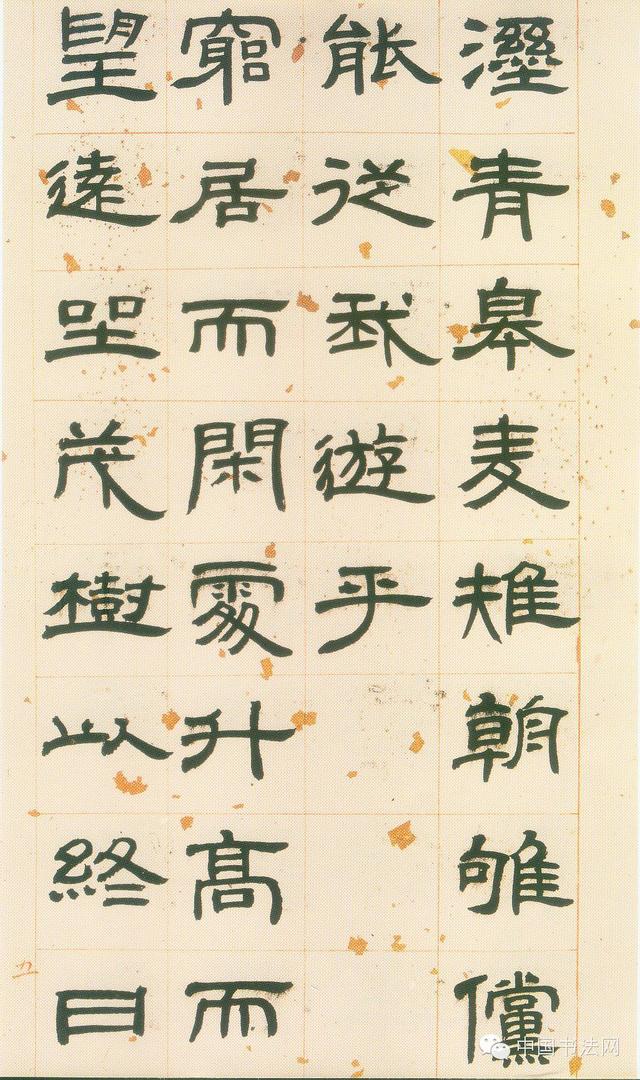 溼青皋麦雉朝雊儻
能從我遊乎
窮居而閑處升高而
望遠坐茂樹以終日
中国书法网